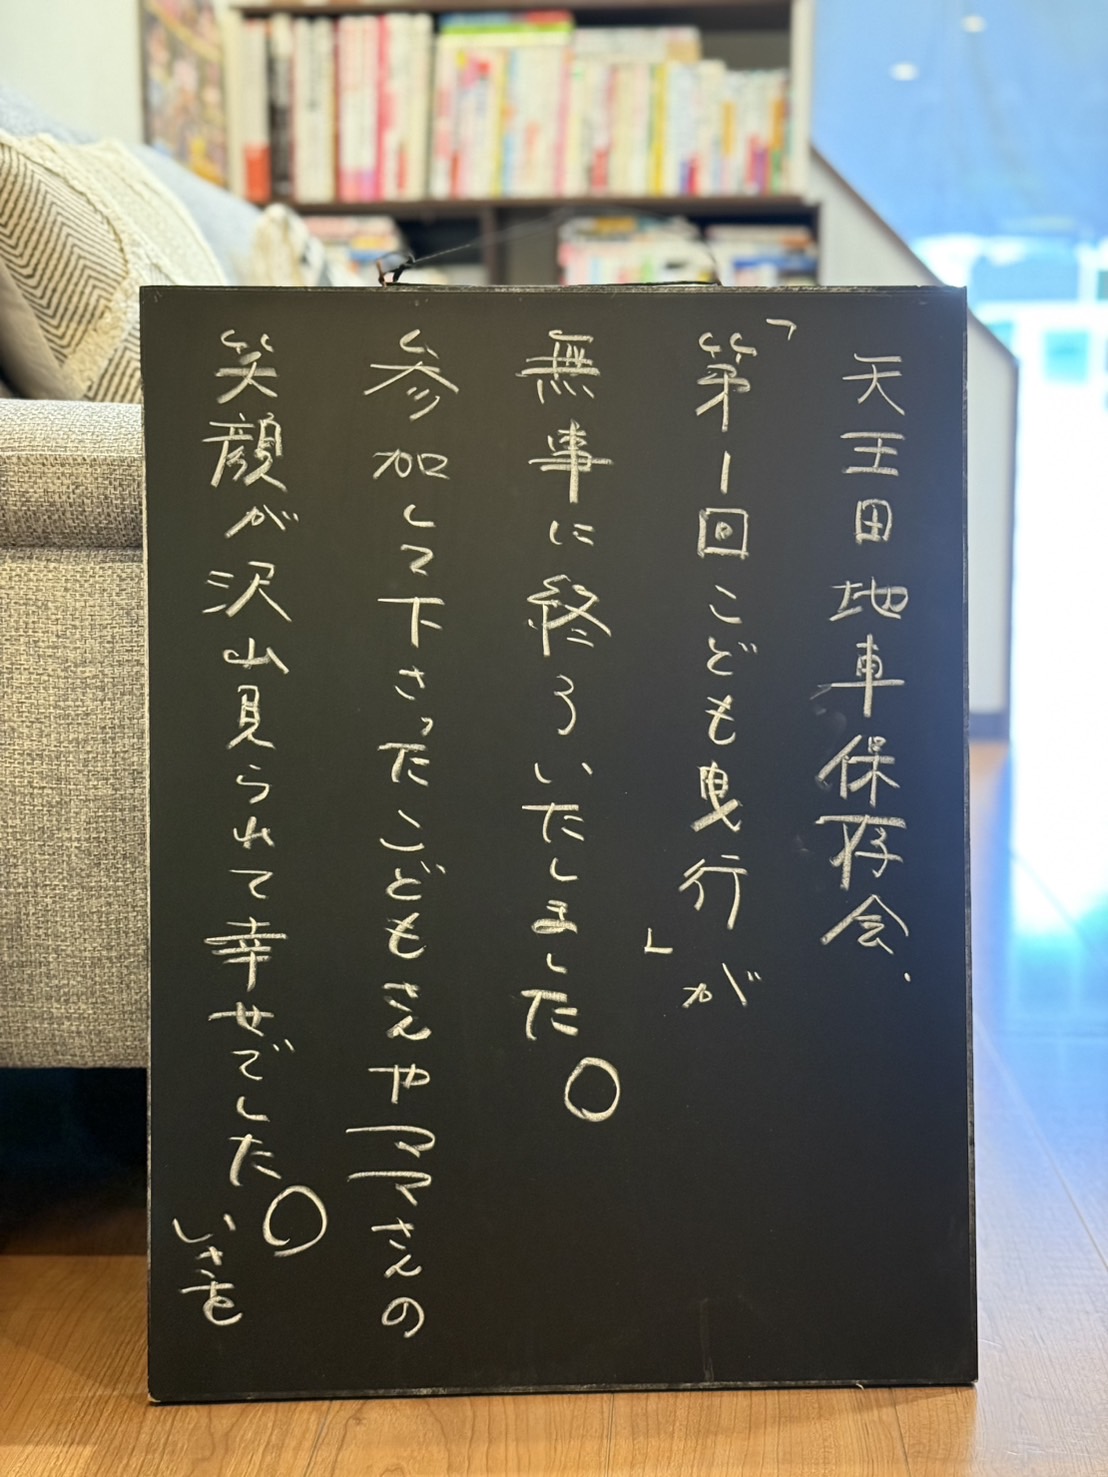 天王田地車保存会.
「第1回こども曳行」が
無事に終ろいたしました。
参加して下さったこどもさんやママさんの
笑顔が沢山見られて幸せでした。